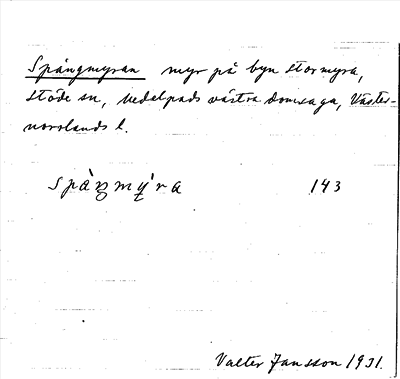 Spångmyran myr på byn Stormyra,
Stöde sn, Medelpads västra domsaga, Väster-
norrlands l.
spàŋmy̨'ra 143
Valter Jansson 1931.